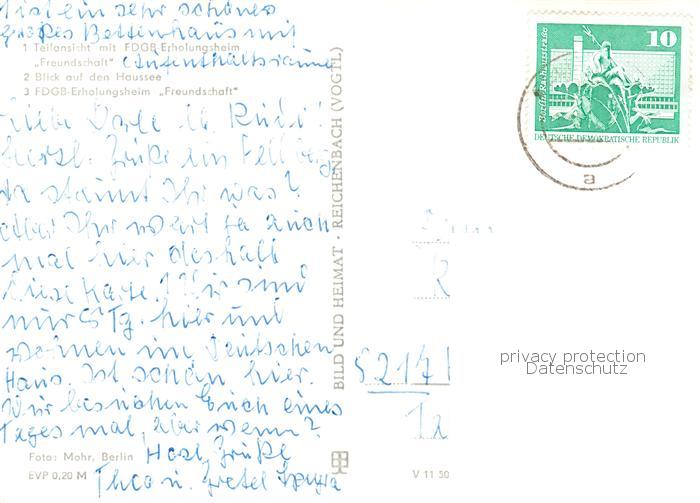 ist ein sehr schönes
großes Bettenhaus mit
1 Teilansicht mit FDGB-Erholungsheim
„Freundschaft" (Aufenthaltsräume
2 Blick auf den Haussee
3 FDGB-Erholungsheim „Freundschaft"
Liebe u. Rudi!
Herzl. Grüße ein
Da staunt Ihr was?
aber Ihr wart ja auch
mal hier deshalb
diese Karte. Wir sind
nur 5 Tg. hier und
wohnen im Deutschen
Haus. Ist schön hier.
Wir besuchen Euch eines
Tages mal, aber wenn?
Foto: Mohr, Berlin Herzl. Grüße
EVP 0,20 M Theo u. Gretel
BILD UND HEIMAT · REICHENBACH (VOGTL)
V 11 50
5214
10
Berlin, Rathausstraße
DEUTSCHE DEMOKRATISCHE REPUBLIK
a
privacy protection
Datenschutz